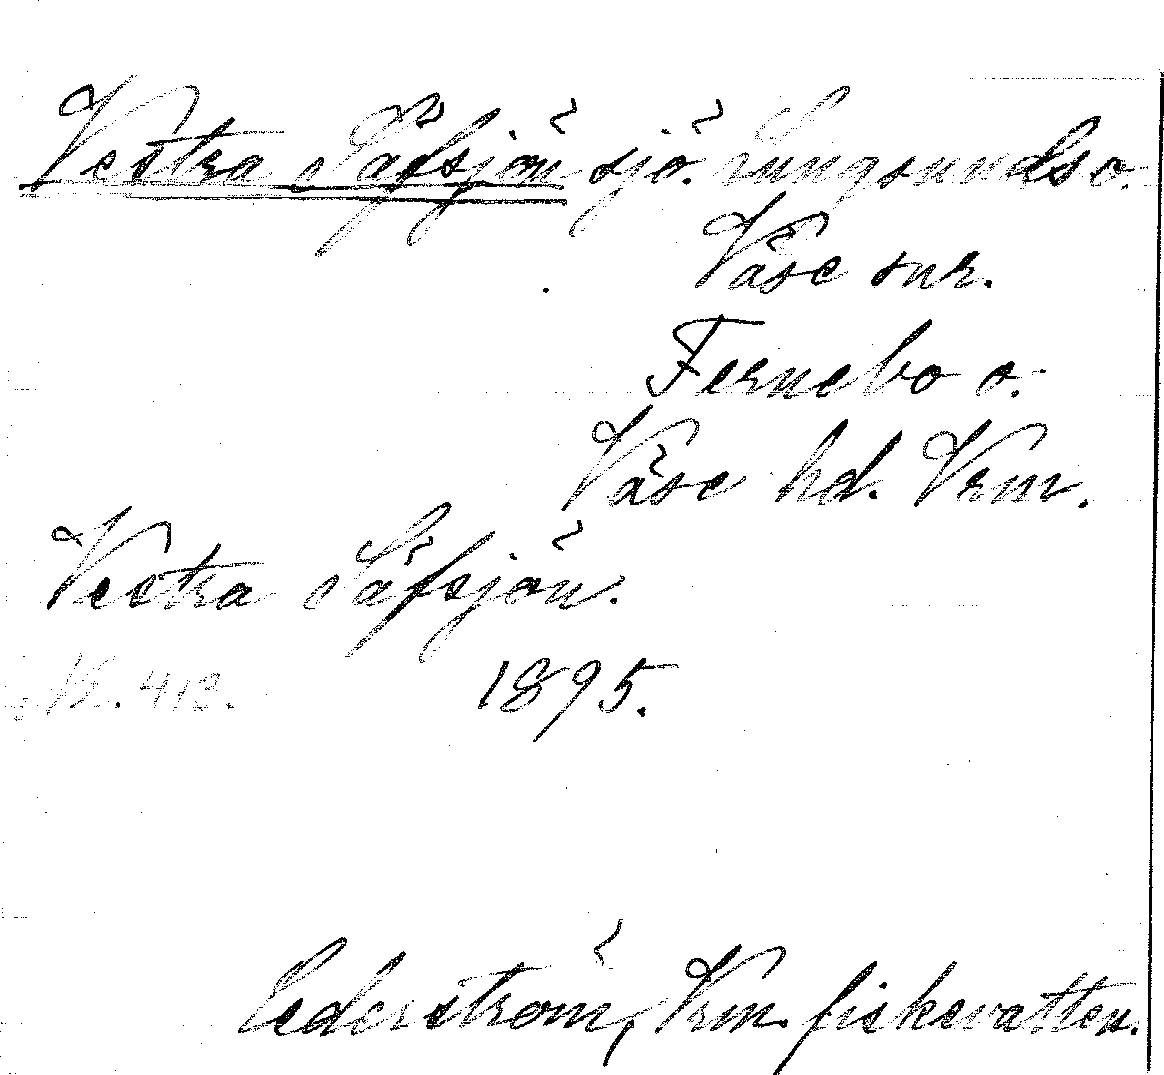 Vestra Säfsjön sjö. Lungsunds o.
Väse snr.
Fernebo o.
Väse hd. Vrm.
Vestra Säfsjön.
413. 1895.
Cederström, Vrm. fiskevatten.